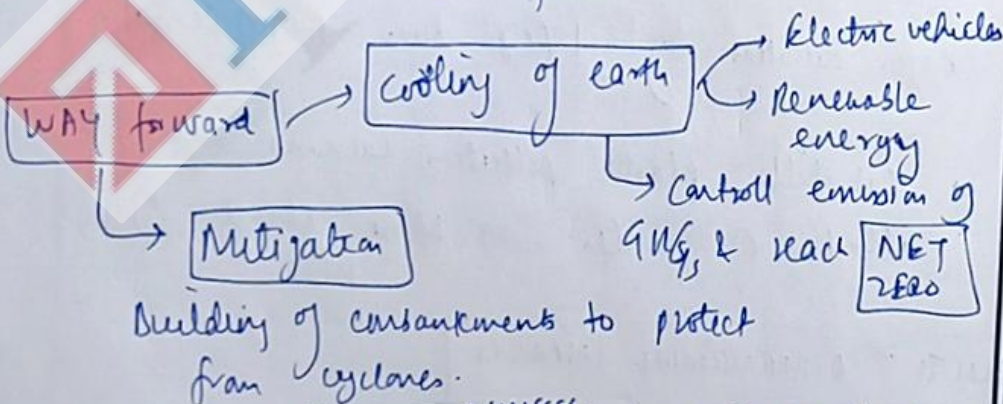 WAY forward
Cooling of earth
Electric vehicles
Renewable
energy
Controll emission of
GHGs & reach NET
ZERO
Mitigation
Building of embankments to protect
from cyclones.